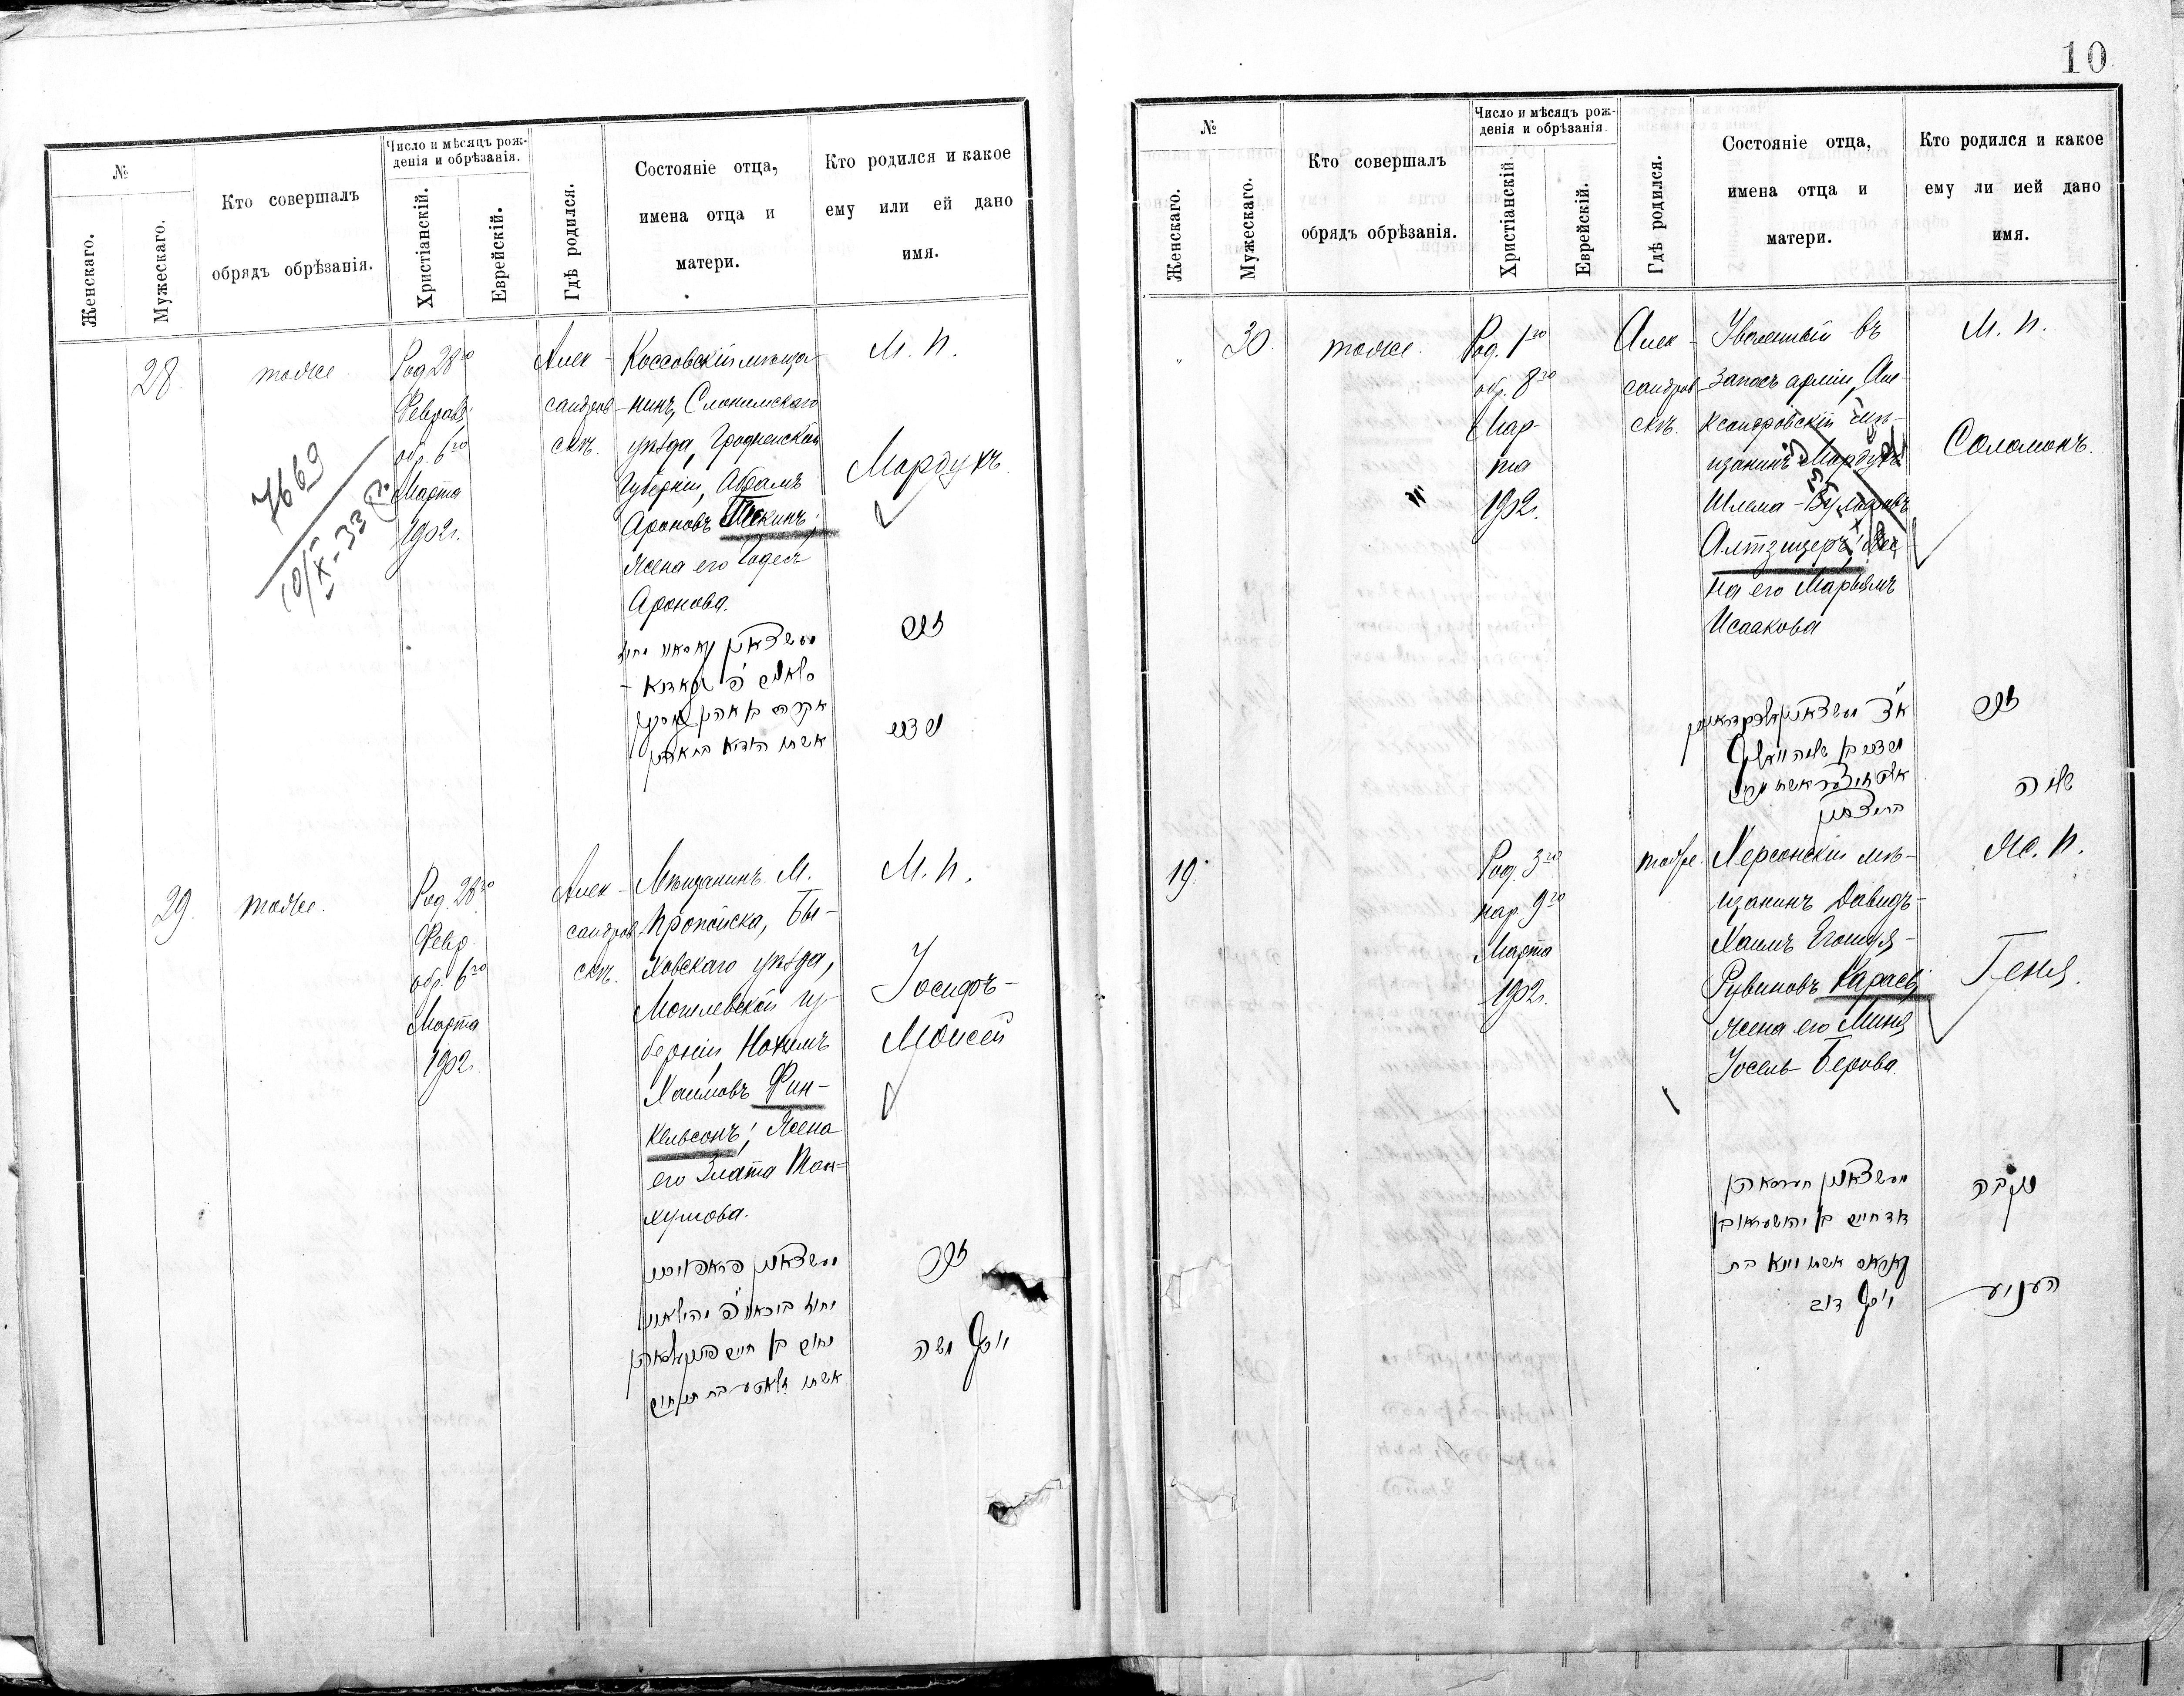 10
№
Женскаго.
Мужескаго.
Кто совершалъ
обрядъ обрѣзанія.
Число и мѣсяцъ рож-
денія и обрѣзанія.
Христіанскій.
Еврейскій.
Гдѣ родился.
Состояніе отца,
имена отца и
матери.
Кто родился и какое
ему или ей дано
имя.
28
тоже
Род. 28го
Февраля;
обр. 6го
Марта
1902г.
Алек-
сандров-
скъ.
Коссовскій мѣща-
нинъ, Слонимскаго
уѣзда, Гродненской
Губерніи, Абрамъ
Ароновъ
жена его Годесъ
Аронова.
М. п.
Мардухъ
7669
10/IX-33
זכר
29.
тоже.
Род. 28го
Февр.
обр. 6го
Марта
1902г.
Алек-
сандров-
скъ.
Мѣщанинъ М.
Пропойска, Бы-
ховскаго уѣзда,
Могилевской гу-
берніи, Нохимъ
Хаимовъ Фин-
кельсонъ; жена
его Злата Тан-
хумова.
М. п.
Іосифъ-
Моисей
נחום בן חיים פינקעלסאהן
אשתו זלאטע בת תנחום
זכר
יוסף משה
№
Женскаго.
Мужескаго.
Кто совершалъ
обрядъ обрѣзанія.
Число и мѣсяцъ рож-
денія и обрѣзанія.
Христіанскій
Еврейскій.
Гдѣ родился.
Состояніе отца,
имена отца и
матери.
Кто родился и какое
ему ли ией дано
имя.
30
тоже.
Род. 1го
обр. 8го
Мар-
та
1902г.
Алек-
сандров-
скъ.
Уволенный въ
запасъ арміи, Але-
ксандровскій мѣ-
щанинъ Мардухъ
Шлема-Вульфовъ
Алтзицеръ; же-
на его Марьямъ
Исаакова
М. п.
Соломонъ.
זכר
שלמה
19.
Род. 3го
нар. 9го
Марта
1902г.
тоже.
Херсонскій мѣ-
щанинъ Давидъ-
Хаимъ Егошуя-
Рувиновъ Карась;
жена его Миня
Іосель-Берова.
Ж. п.
Геня.
דוד חיים בן יהושע ראובן
קאראס אשתו מינא בת
יוסף דוב
נקבה
העניע